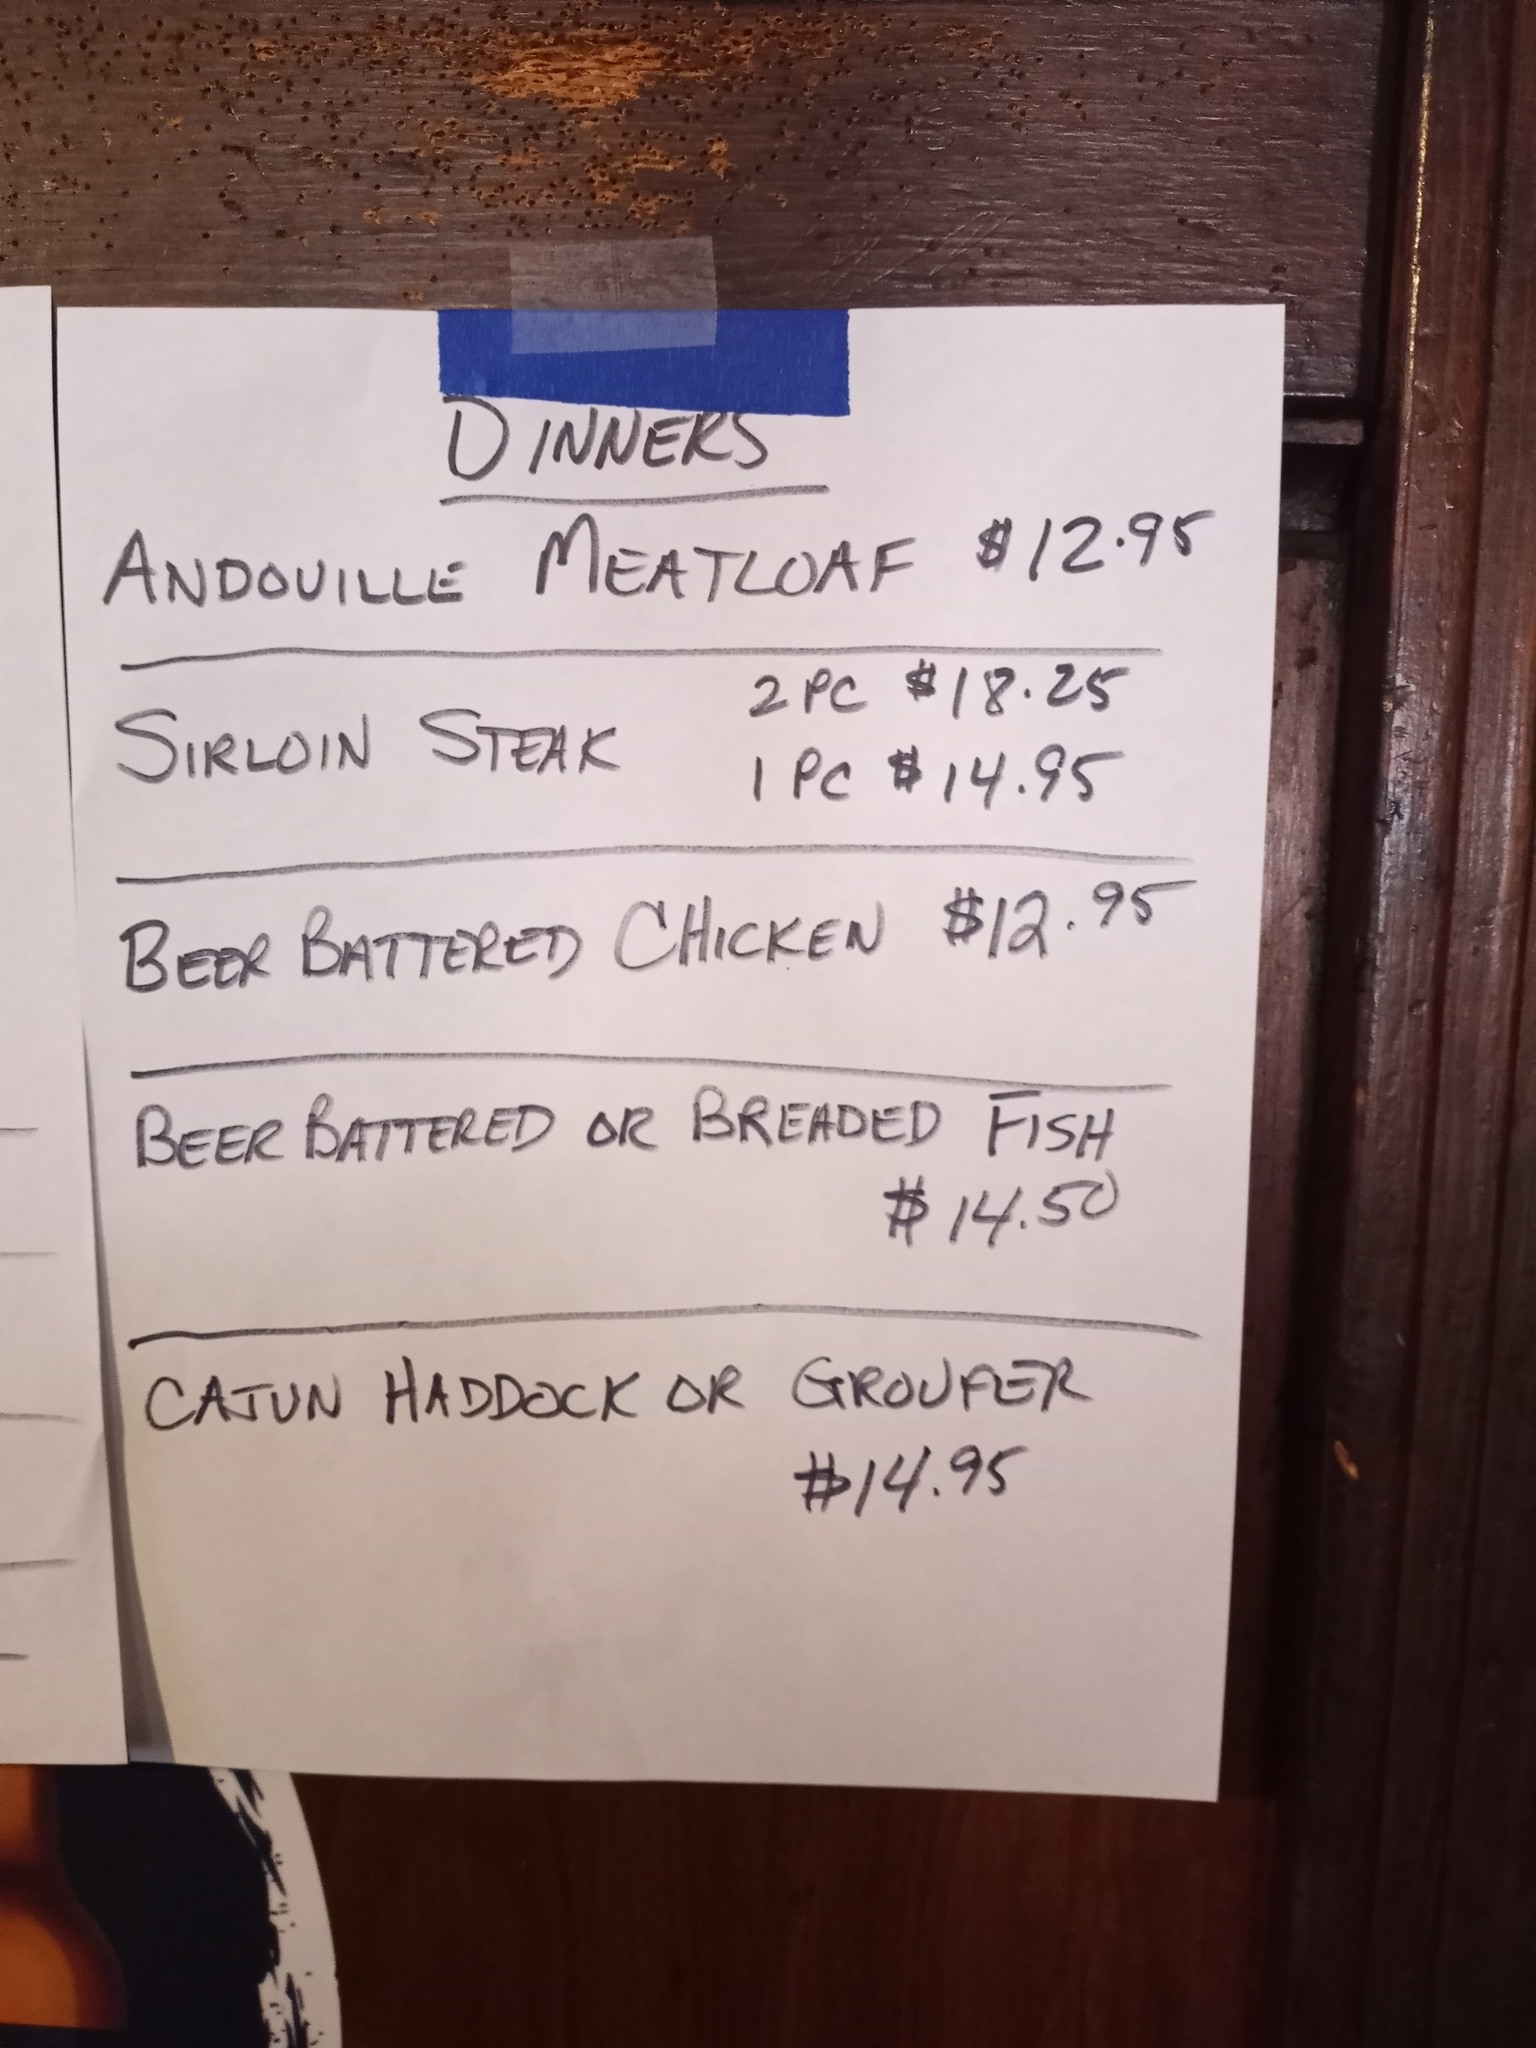 DINNERS
ANDOUILLE MEATLOAF $12.95
SIRLOIN STEAK 2 PC $18.25
1 PC $14.95
BEER BATTERED CHICKEN $12.95
BEER BATTERED OR BREADED FISH
$14.50
CAJUN HADDOCK OR GROUPER
$14.95